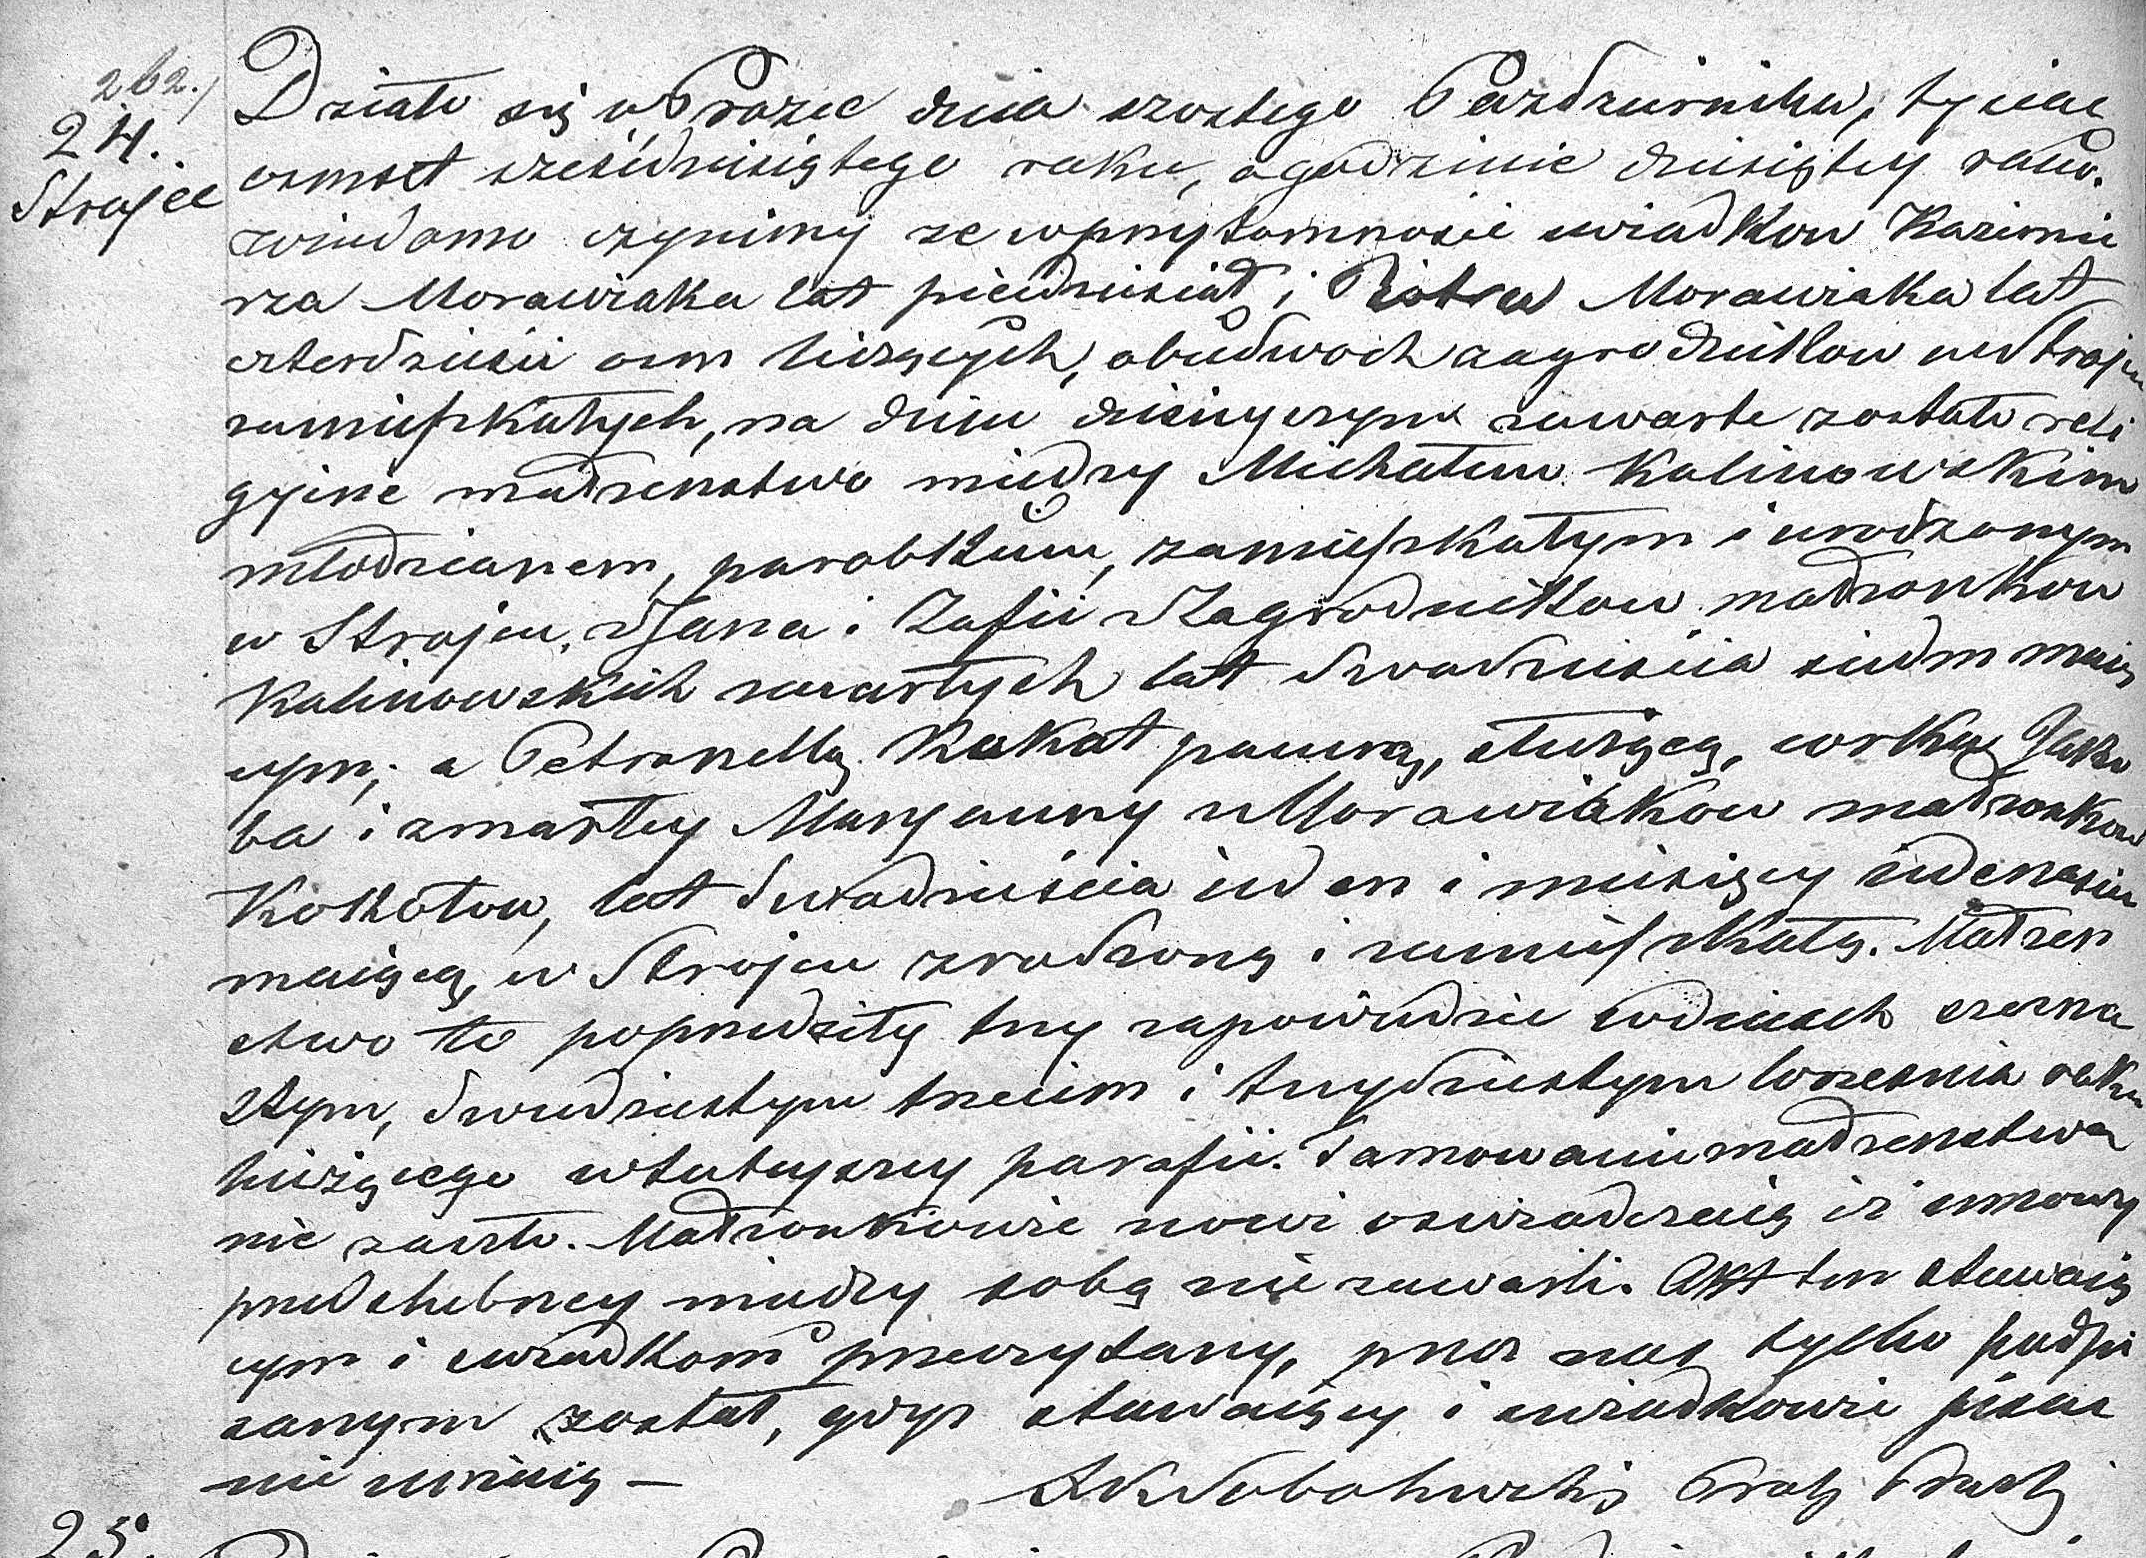 262.
24.
Strojec
Działo się w Prazce dnia szostego Pazdziernika, tysiac
osmset sześćdziesiątego roku, o godzinie dziesiątej rano.
wiadomo czynimy ze w przytomnosci swiadkow Kazimie
rza Morawiaka lat piedziesiat i Piotra Morawiaka lat
czterdziesci osm liczących, obudwoch zagrodnikow w Strojcu
zamieszkałych, na dniu disiejszym zawarte zostało reli
gijne małzenstwo miedzy Michałem Kalinowskim
młodzianem, parobkiem, zamieszkałym i urodzonym
w Strojcu, z Jana i Zofii Zagrodnikow małzonkow
Kalinowskich zmarłych lat dwadziescia siedm maią
cym; a Petronellą Kokot panną, służącą, corką Jako
ba i zmarłey Maryanny z Morawiakow małzonkow
Kokotow, lat dwadzieścia ieden i miesięcy iedenascie
maiącą, w Strojcu zrodzoną i zamieszkałą. Małzen
stwo to poprzedziły trzy zapowiedzie w dniach szesna
stym, dwudziestym trzecim i trzydziestym Wrzesnia roku
bieżącego w tutejszey parafii. Tamowanie małzenstwa
nie zaszło. Małzonkowie nowi oswiadczaią iż umowy
przedslubney miedzy sobą nie zawarli. Akt ten stawaią
cym i swiadkom przeczytany, przez nas tylko podpi
sanym został, gdyz stawaiący i swiadkowie pisac
nie umieią —
25.